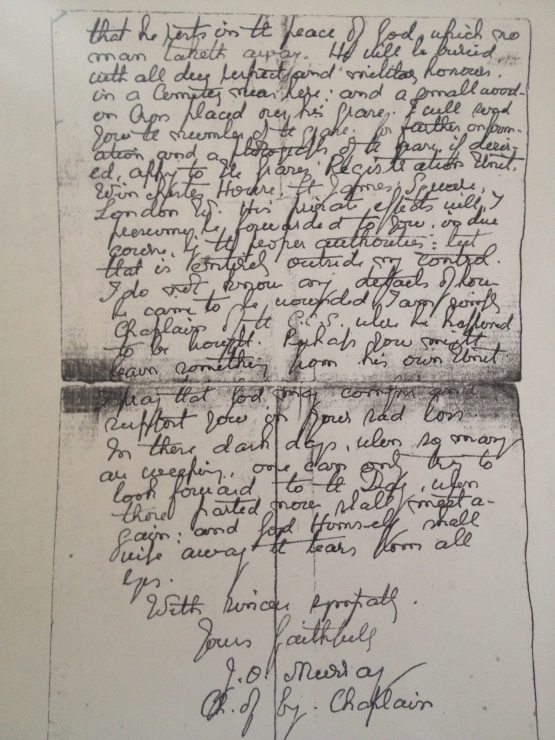 that he rests in the peace of God, which no
man taketh away. He will be buried
with all due respect and military honours.
in a Cemetery near here: and a small wood-
en Cross placed over his grave. I will send
you the number of the grave. for further inform-
ation and a photograph of the grave, if desir-
ed, apply to the Graves Registration Unit.
Winchester House, St James Square,
London W. His private effects will, I
presume, be forwarded to you in due
course, by the proper authorities: but
that is entirely outside my control.
I do not know any details of how
he came to be wounded. I am simply
Chaplain of the C.C.S. where he happened
to be brought. Perhaps you might
learn something from his own Unit.
I pray that God may comfort and
support you in your sad loss
In these dark days, when so many
are weeping, one can only try to
look forward to the Day, when
those parted now shall meet a-
gain: and God Himself shall
wipe away the tears from all
eyes.
With sincere sympathy.
Yours faithfully
J.O. Murray
Ch. of Eng. Chaplain